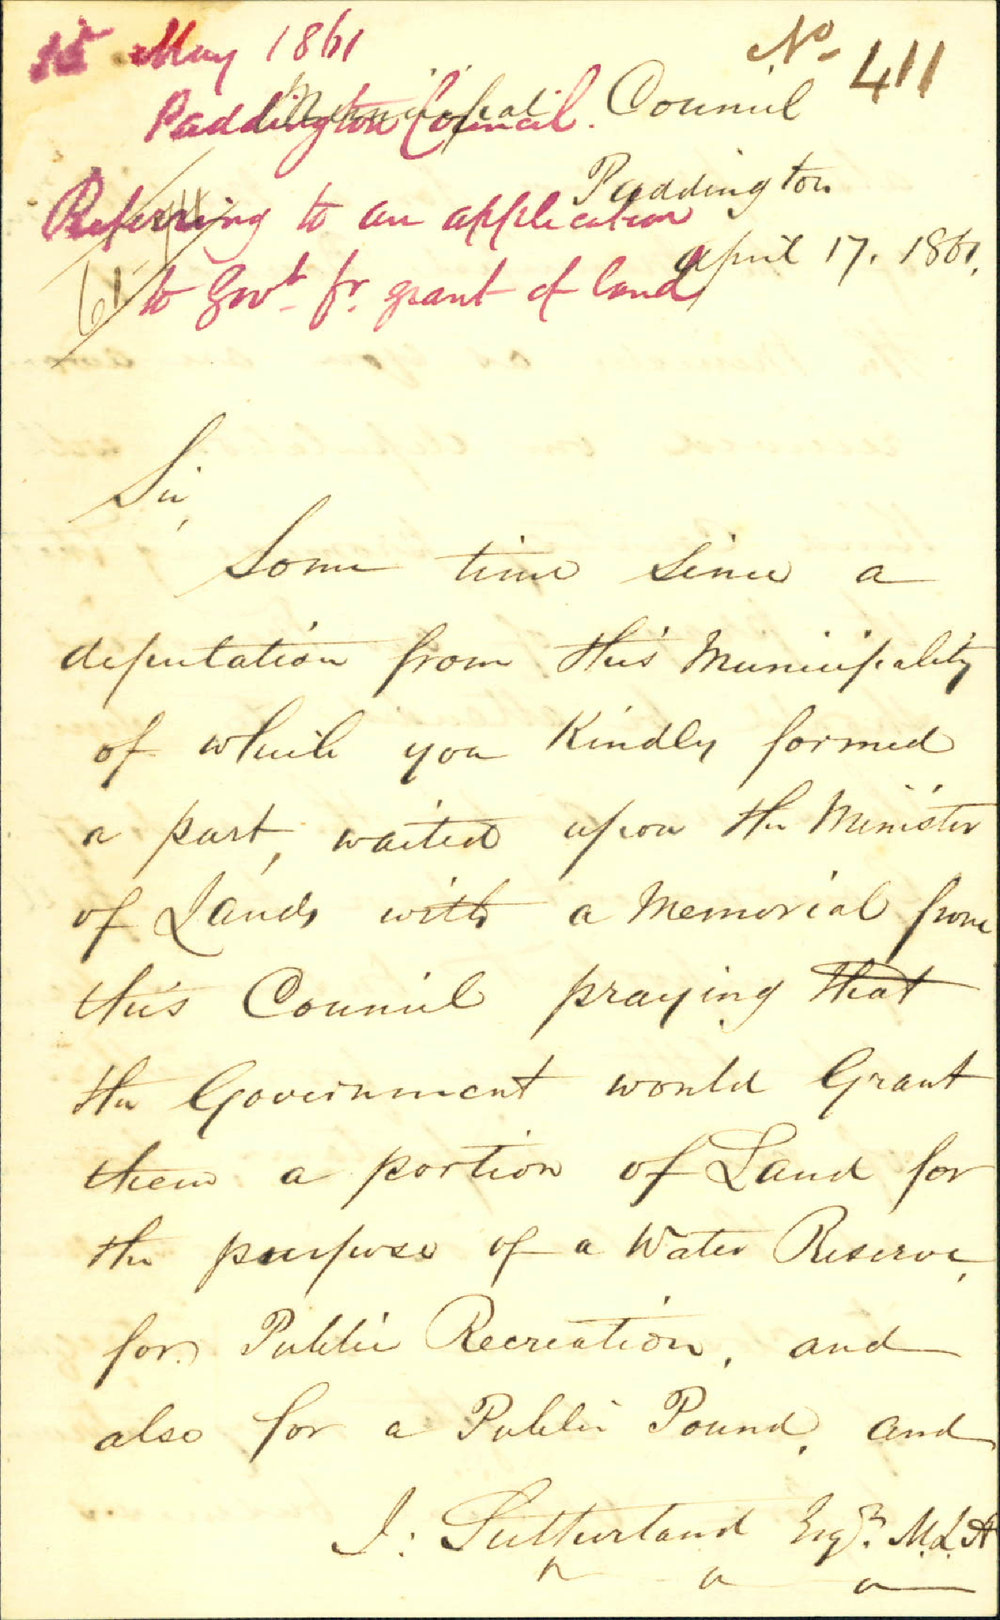 1st May 1861
No. 411
Paddington Council.
Municipal Council
Paddington
Referring to an application
April 17. 1861.
to Govt. fr. grant of land
61
Sir,
Some time since a
deputation from this Municipality
of which you Kindly formed
a part, waited upon the Minister
of Lands with a Memorial from
this Council praying that
the Government would Grant
them a portion of Land for
the purpose of a Water Reserve,
for Public Recreation, and
also for a Public Pound, and
J: Sutherland Esqr. M.L.A